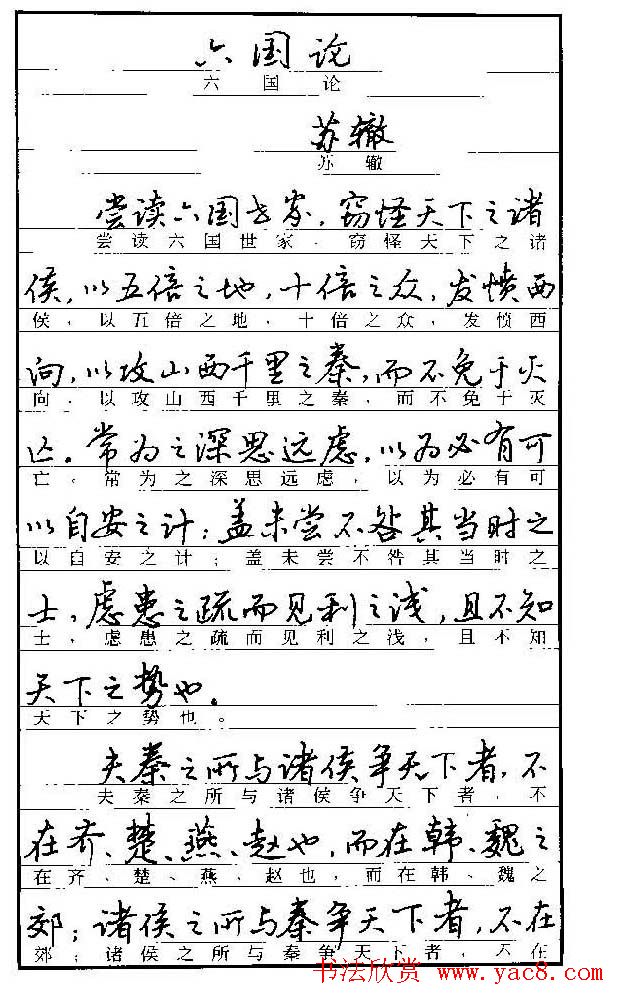 六国论
六国论
苏辙
苏辙
尝读六国世家，窃怪天下之诸
尝读六国世家，窃怪天下之诸
侯，以五倍之地，十倍之众，发愤西
侯，以五倍之地，十倍之众，发愤西
向，以攻山西千里之秦，而不免于灭
向，以攻山西千里之秦，而不免于灭
亡。常为之深思远虑，以为必有可
亡。常为之深思远虑，以为必有可
以自安之计；盖未尝不咎其当时之
以自安之计；盖未尝不咎其当时之
士，虑患之疏而见利之浅，且不知
士，虑患之疏而见利之浅，且不知
天下之势也。
天下之势也。
夫秦之所与诸侯争天下者，不
夫秦之所与诸侯争天下者，不
在齐、楚、燕、赵也，而在韩、魏之
在齐、楚、燕、赵也，而在韩、魏之
郊；诸侯之所与秦争天下者，不在
郊；诸侯之所与秦争天下者，不在
书法欣赏 www.yac8.com